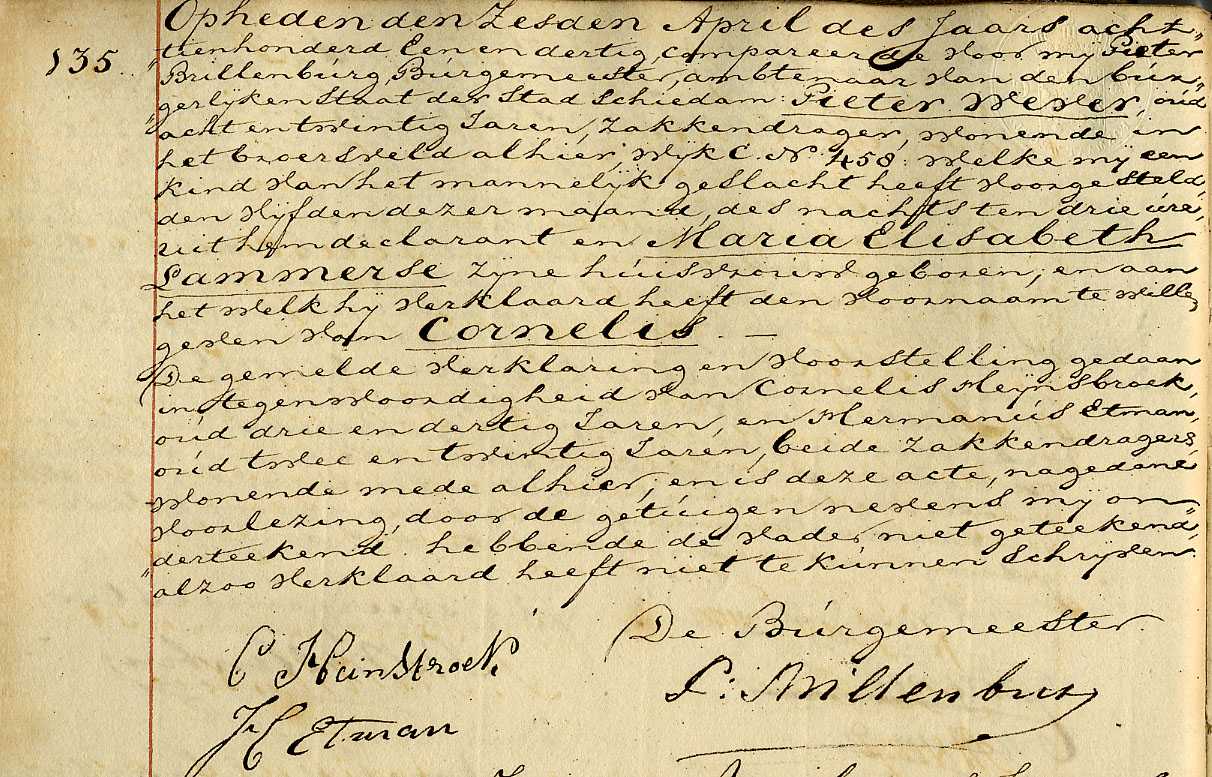 135.
Opheden den Zesden April des Jaars acht„
„tienhonderd Een en dertig, compareerde voor mij Pieter
Brillenburg, Burgemeester, ambtenaar van den bur„
„gerlijken Staat der Stad Schiedam: Pieter Wever, oud
acht en twintig Jaren, Zakkendrager, wonende in
het broersveld alhier, Wijk C. No 458: welke mij een
kind van het mannelijk geslacht heeft voorgesteld,
den vijfden dezer maand, des nachts ten drie ure,
uit hem declarant en Maria Elisabeth
Lammerse zijne huisvrouw geboren; en aan
het welk hij verklaard heeft den voornaam te wille,
geven van Cornelis. —
De gemelde verklaring en voorstelling gedaan
in tegenwoordigheid van Cornelis Heijnsbroek,
oud drie en dertig Jaren, en Hermanus Etman,
oud twee en twintig Jaren, beide Zakkendragers,
wonende mede alhier, en is deze acte, na gedane
voorlezing, door de getuigen nevens mij on„
„derteekend. hebbende de vader niet geteekend,
alzoo verklaard heeft niet te kunnen Schrijven.
De Burgemeester.
C Heinsbroek
P: Brillenburg
H Etman